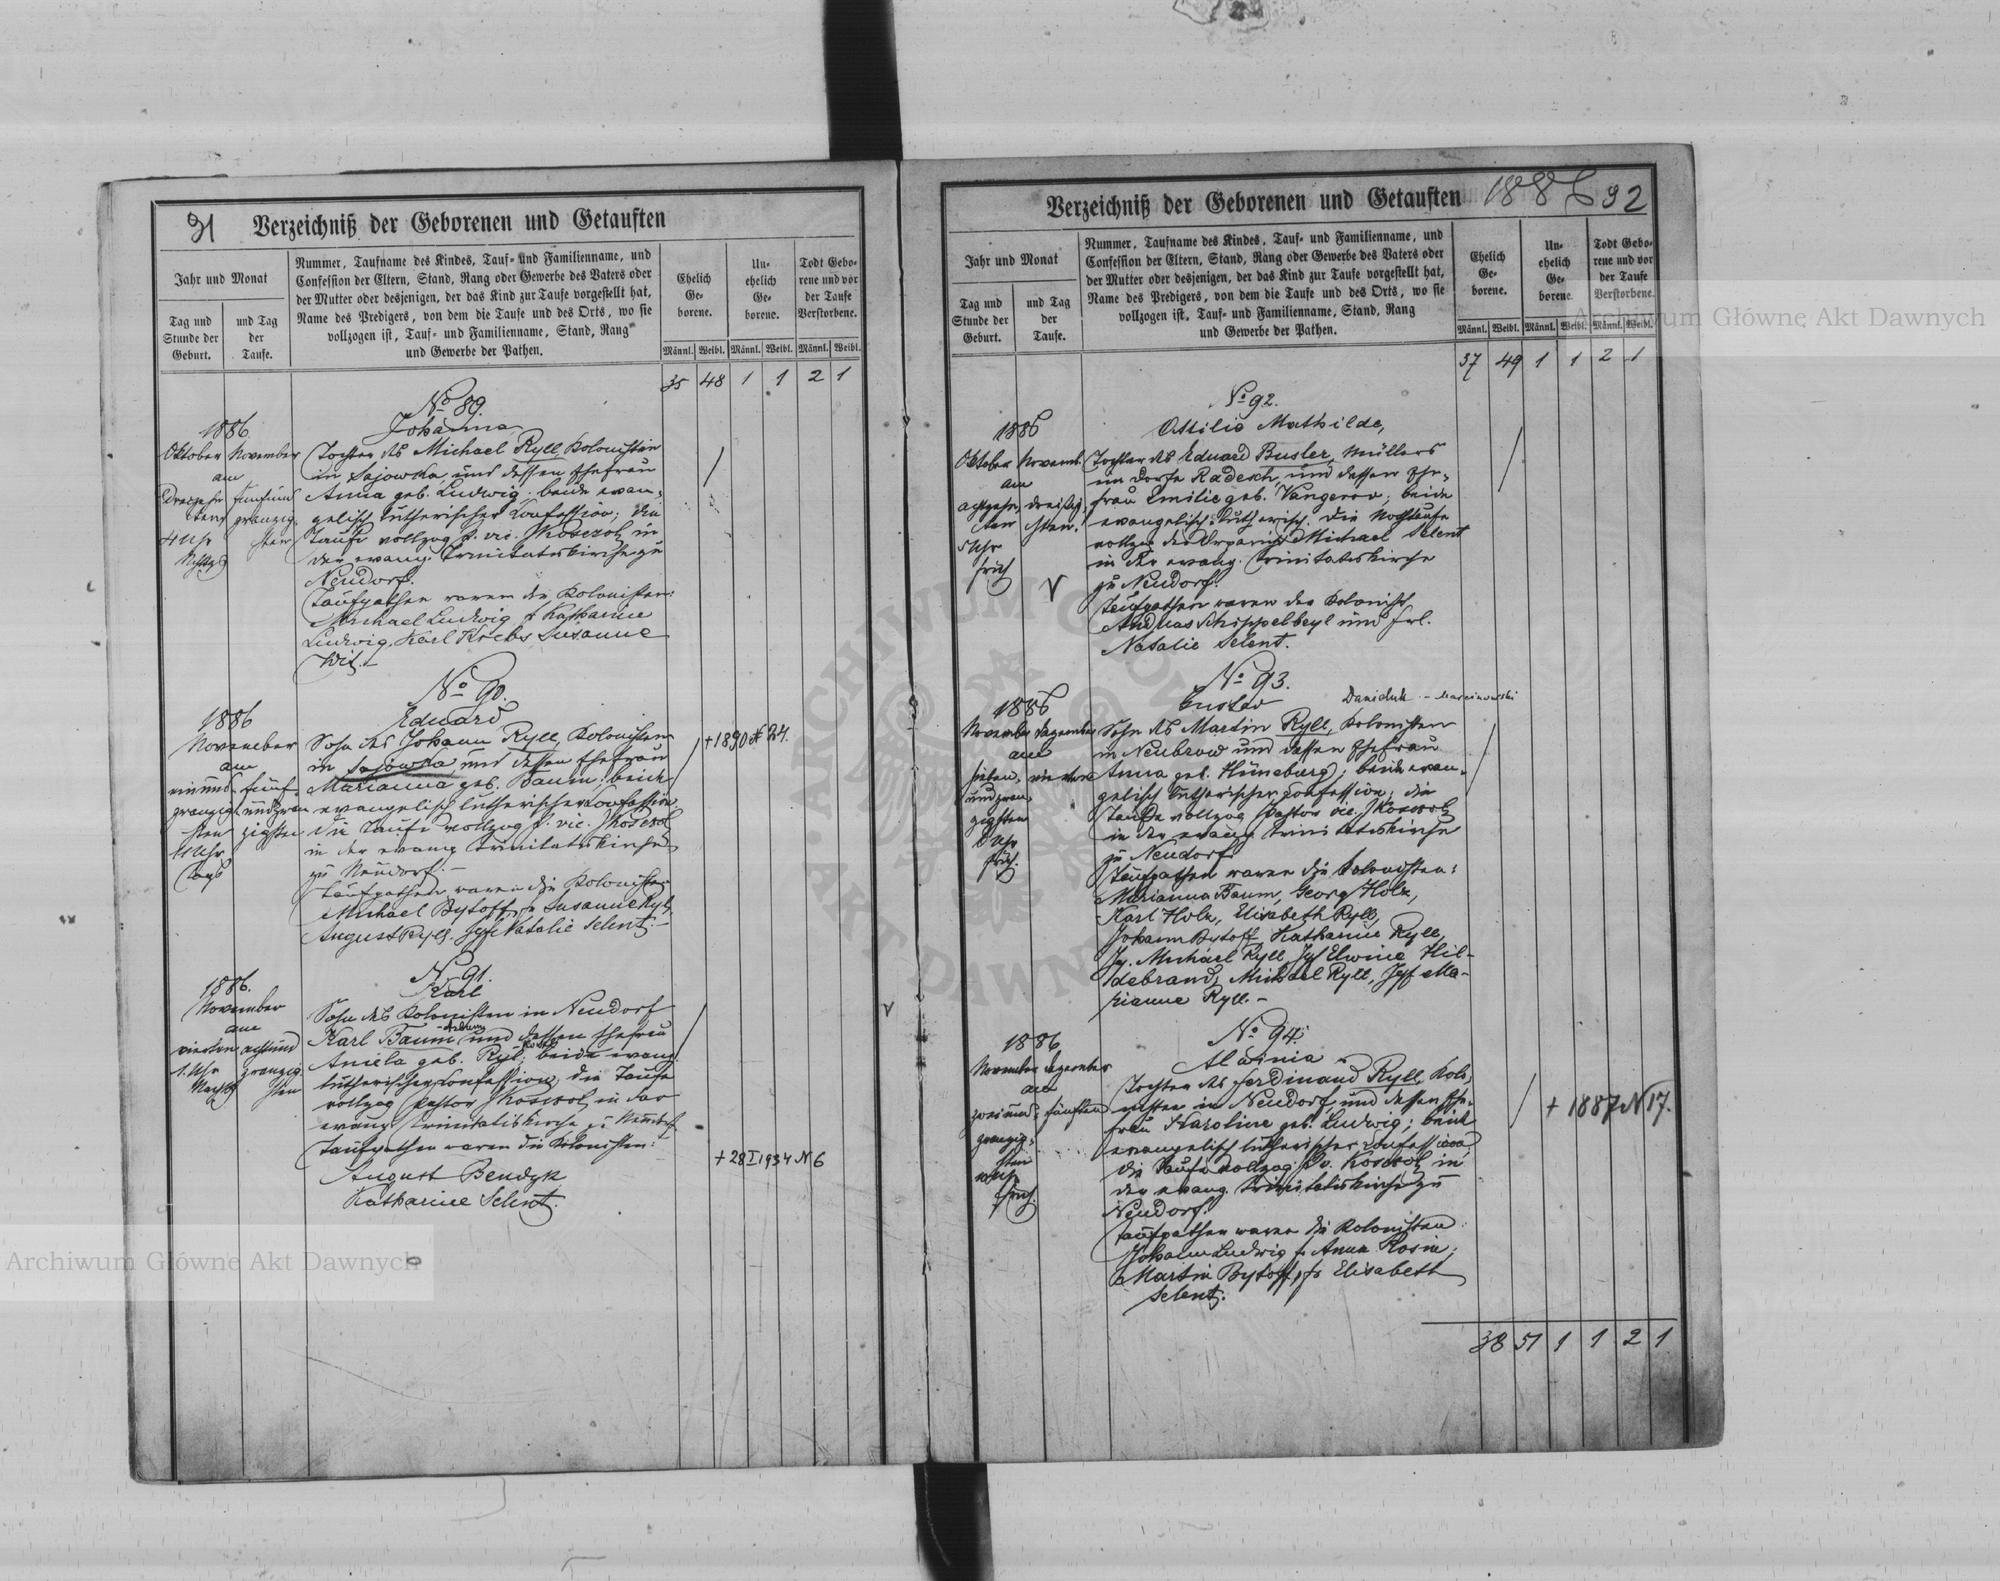 31 Verzeichniß der Geborenen und Getauften
Jahr und Monat
Tag und Stunde der Geburt.
und Tag der Taufe.
Nummer, Taufname des Kindes, Tauf- und Familienname, und
Confession der Eltern, Stand, Rang oder Gewerbe des Vaters oder
der Mutter oder desjenigen, der das Kind zur Taufe vorgestellt hat,
Name des Predigers, von dem die Taufe und des Orts, wo sie
vollzogen ist, Tauf- und Familienname, Stand, Rang
und Gewerbe der Pathen.
Ehelich Ge- borene.
Un- ehelich Ge- borene.
Todt Gebo- rene und vor der Taufe Verstorbene.
Männl. Weibl. Männl. Weibl. Männl. Weibl.
35 48 1 1 2 1
No 89.
Johanna
1886
Oktober November
am
4 Uhr
Tochter des Michael Ryll, Kolonisten
in Sajowka, und dessen Ehefrau
Anna geb. Ludwig; beide evan-
gelisch lutherischer Confession; die
Taufe vollzog P. vic. in
der evang. Trinitatiskirche zu
Neudorf.
Taufpathen waren die Kolonisten:
Michael Ludwig f Katharine
Ludwig, Karl Krebs Susanne
No 90.
Eduard
1886
November
am
einund fünf-
zwanzig undzwan
sten zigsten
Uhr
Sohn des Johann Ryll, Kolonisten
in Sajowka und dessen Ehefrau
Marianna geb. Baum; beide
evangelisch lutherischer Confession
die Taufe vollzog P. vic.
in der evang Trinitatiskirche
zu Neudorf. –
Taufpathen waren die Kolonisten
Michael Bytoff, f Susanne Ryll,
August Ryll. Jgf Natalie Selent. –
+ 1890 N 24.
No 91.
Karl
1886.
November
am
vierten achtund
1. Uhr zwanzig
sten
Sohn des Kolonisten in Neudorf
Karl Baum und dessen Ehefrau
Aniela geb. Ryl; beide evang.
lutherischer Confession; die Taufe
vollzog Pastor in der
evang Trinitatiskirche zu Neudorf
Taufpathen waren die Kolonisten:
August Bendyk
Katharine Selent.
+ 28 I 1934 N 6
Verzeichniß der Geborenen und Getauften 1886 92
Jahr und Monat
Tag und Stunde der Geburt.
und Tag der Taufe.
Nummer, Taufname des Kindes, Tauf- und Familienname, und
Confession der Eltern, Stand, Rang oder Gewerbe des Vaters oder
der Mutter oder desjenigen, der das Kind zur Taufe vorgestellt hat,
Name des Predigers, von dem die Taufe und des Orts, wo sie
vollzogen ist, Tauf- und Familienname, Stand, Rang
und Gewerbe der Pathen.
Ehelich Ge- borene.
Un- ehelich Ge- borene.
Todt Gebo- rene und vor der Taufe Verstorbene.
Männl. Weibl. Männl. Weibl. Männl. Weibl.
37 49 1 1 2 1
No 92.
Ottilie Mathilde,
1886
Oktober Novemb.
am
5 Uhr
früh
Tochter des Eduard Busler, Müllers
im Dorfe Radesch, und dessen Ehe-
frau Emilie geb. Vangerow; beide
evangelisch-lutherisch. Die Nothtaufe
vollzog der Michael Selent
in der evang. Trinitatiskirche
zu Neudorf.
Taufpathen waren der Kolonist
Andreas Schippelbeyl und Frl.
Natalie Selent.
No 93.
Gustav
Daniduk - Marcinowski
1886
November Dezember
am
sieben
undzwan
zigsten
Uhr
früh.
Sohn des Martin Ryll, Kolonisten
in Neubrow und dessen Ehefrau
Anna geb. Hüneburg; beide evan-
gelisch lutherischer Confession; die
Taufe vollzog Pastor vic.
in der evang Trinitatiskirche
zu Neudorf.
Taufpathen waren die Kolonisten:
Marianna Baum, Georg Holz,
Karl Holz, Elisabeth Ryll,
Johann Bytoff, Katharine Ryll,
Jg. Michael Ryll, Jgf Elwine Hil-
debrand, Michael Ryll, Jgf Ma-
rianne Ryll. –
No 94.
1886
November Dezember
am
zweiund fünften
zwanzig-
sten
Uhr
früh.
Tochter des Ferdinand Ryll, Kolo-
nisten in Neudorf, und dessen Ehe-
frau Karoline geb. Ludwig; beide
evangelisch lutherischer Confession;
die Taufe vollzog P. v. in
der evang. Trinitatiskirche zu
Neudorf.
Taufpathen waren die Kolonisten:
Johann Ludwig f Anna Rosin;
Martin Bytoff, f Elisabeth
Selent.
+ 1887 N 17.
38 51 1 1 2 1
Archiwum Główne Akt Dawnych
Archiwum Główne Akt Dawnych